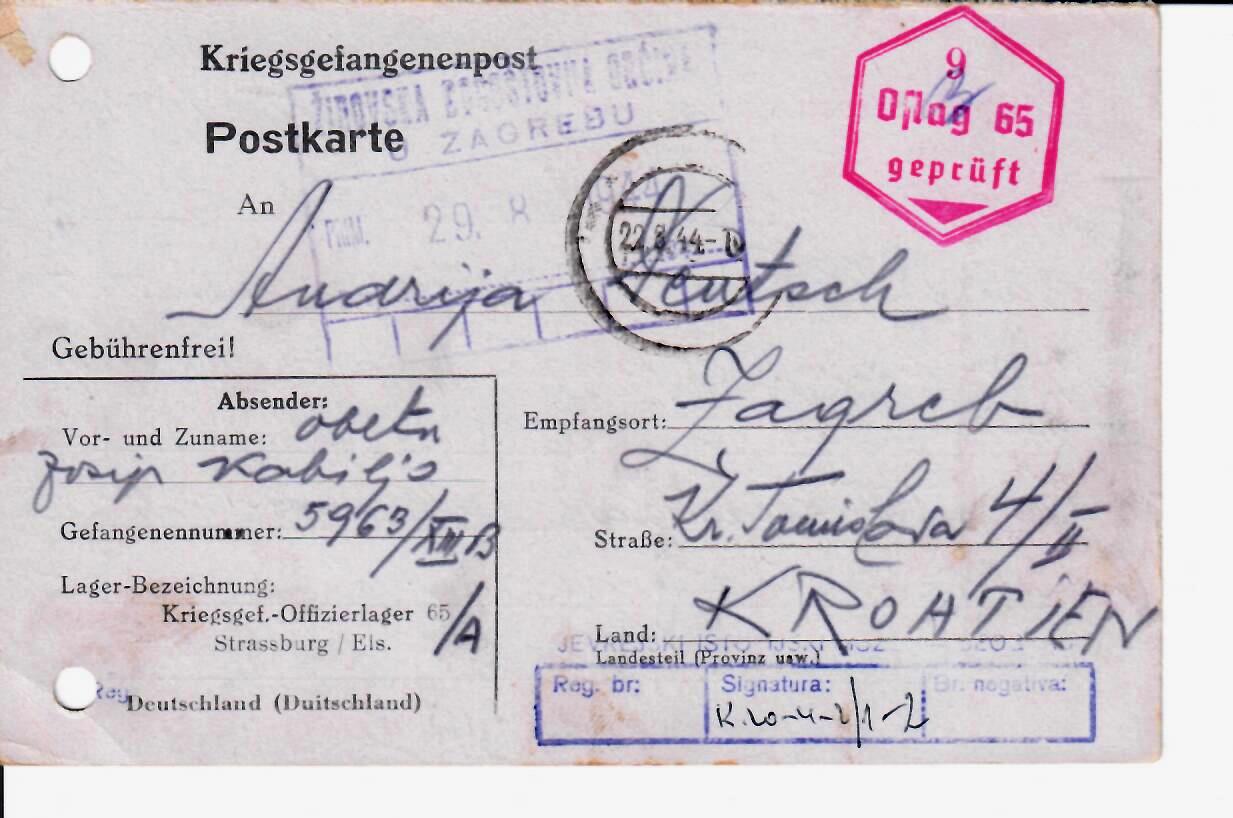 Kriegsgefangenenpost
Postkarte
ŽIDOVSKA BOGOŠTOVNA OPĆINA
U ZAGREBU
Prim. 29. 8 1944
22.8.44
9
Oflag 65
geprüft
An Andrija Deutsch
Gebührenfrei!
Absender:
Vor- und Zuname:
Josip Kabiljo
Gefangenennummer: 5963/XIII B
Lager-Bezeichnung:
Kriegsgef.-Offizierlager 65/A
Strassburg / Els.
Deutschland (Duitschland)
Empfangsort: Zagreb
Straße: Kr. Tomislava 4/II
Land: KROATIEN
Landesteil (Provinz usw.)
Reg. br: Signatura: Br. negativa:
K.20-4-2/1-2
Reg